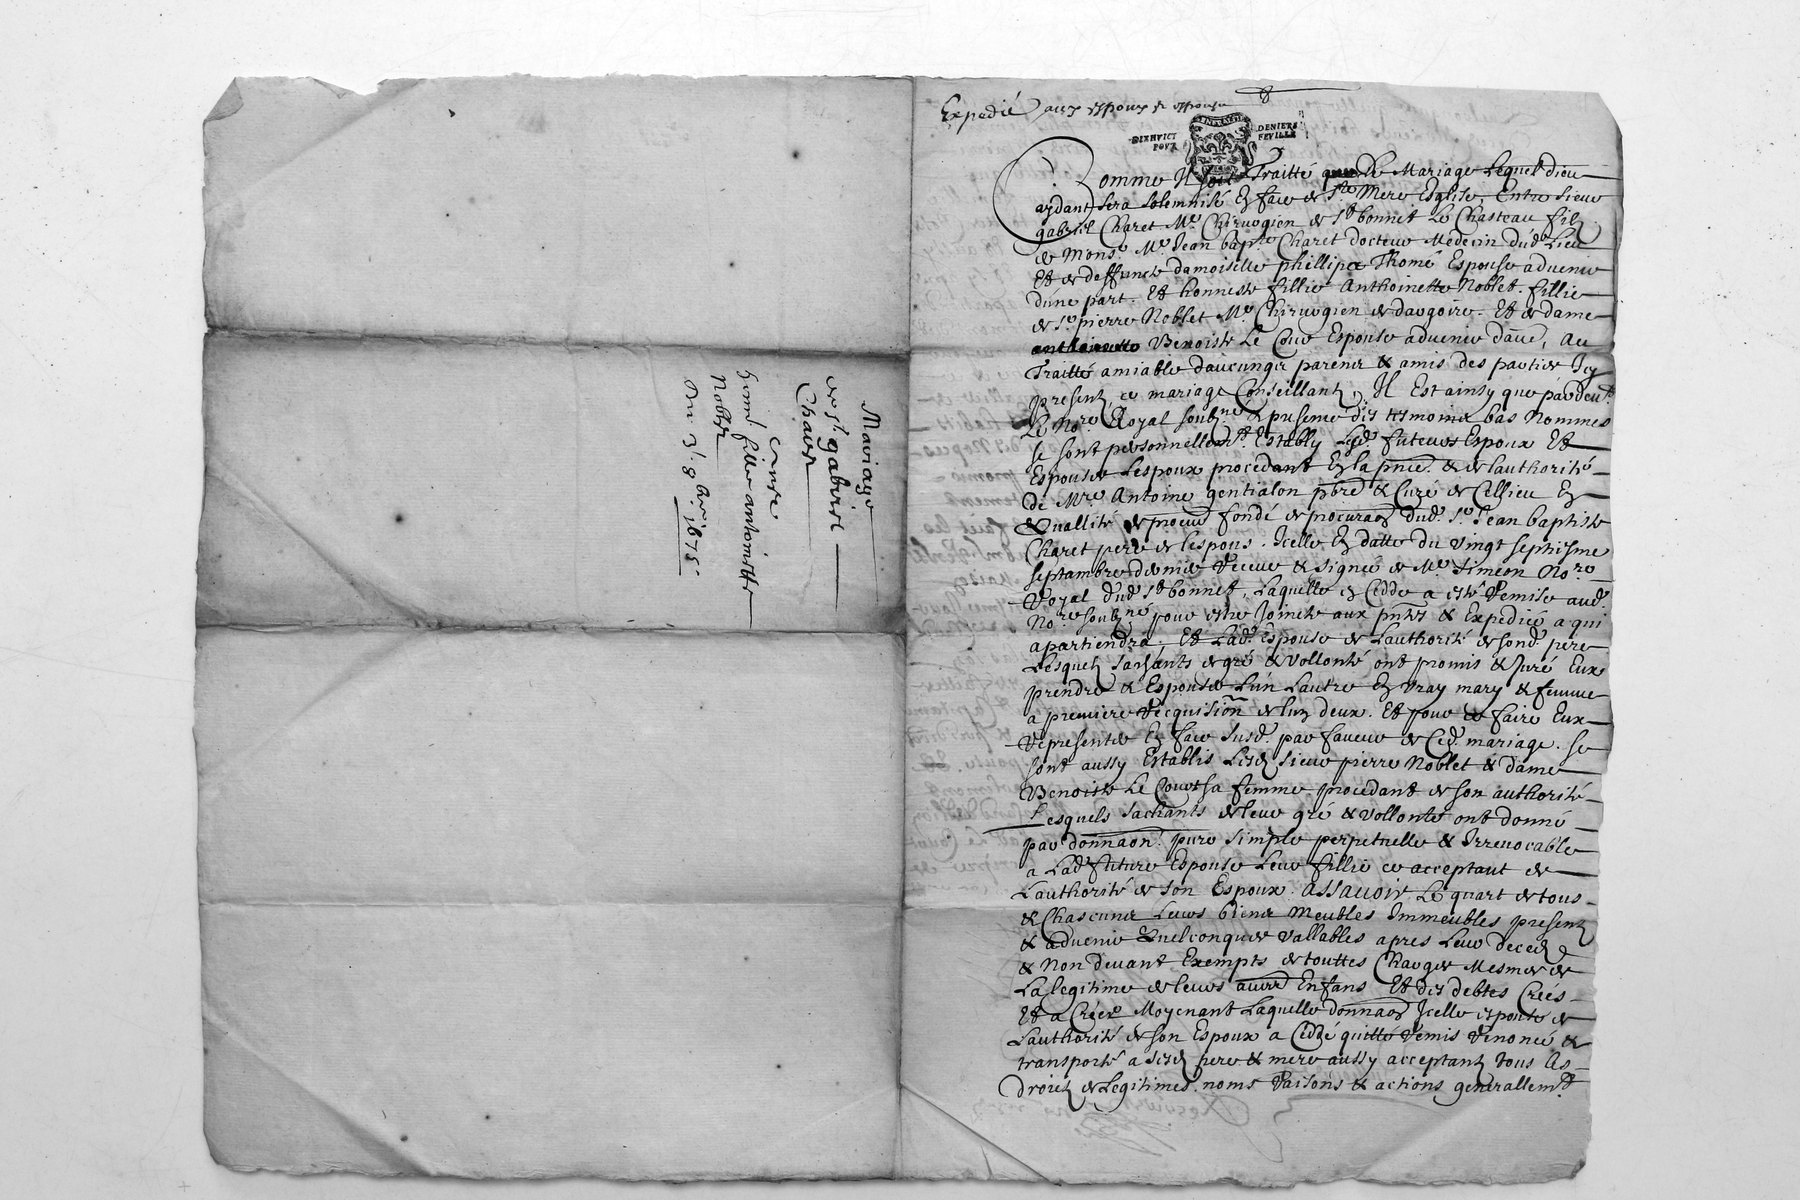 Mariage
de sr gabriel
Charet
avec
honn fillie antoinette
Noblet
Du 3e 8bre 1675
Expedié aux espoux et espouse
DIXHVICT DENIERS
POVR FEVILLE
Comme Il soit Traitté de Mariage Lequel dieu
aydant sera solemnisé En face de Ste Mere Esglise, Entre sieur
gabriel Charet Me Chirurgien de St bonnet Le Chasteau fils
de Monsr Me Jean bapte Charet docteur Medecin dud Lieu
Et de deffuncte damoiselle phillipe Thomé Espoux advenir
d'une part. Et honneste fillie Anthoinette Noblet fillie
de sr pierre Noblet Me Chirurgien de dargoire. Et de dame
Benoiste Le Cour Espouse advenir dau, Au
Traitté amiable daucungs parens & amis des parties Icy
presentz ce mariage Conseillantz, Il Est ainsy que pardevt
Le Nore Royal soubzne & presence des tesmoins bas Nommes
se sont personnellemt Establys Lesd futeurs Espoux Et
Espouse Lespoux procedant En la pnce & de lauthorité
de Mre Antoine gentialon pbre & Curé de Cellieu En
Quallité de procur fondé de procuraon dud sr Jean baptiste
Charet pere de lespoux. Icelle En datte du vingt septiesme
septambre dernier Receue & signée de Me Simeon Nore
Royal dud St bonnet, Laquelle En Cedde a esté Remise aud
Nore soubzne pour estre Joincte aux pntes & Expediée a qui
apartiendra, Et Lad Espouse de Lauthorité de sond pere
Lesquelz sachants de gré & vollonté ont promis & Juré Eux
prendre & Espouser L'un Lautre En vray mary & femme
a premiere Recquisition de lun deux. Et pour ce faire Eux
Representer En face susd. par faveur de Ced mariage. se
sont aussy Establis Lesd sieur pierre Noblet & dame
Benoiste Le Court sa femme procedant de son authorité
Lesquels sachants de leur gré & vollonté ont donné
par donnaon pure simple perpetuelle & Irrevocable
a Lad future Espouse Leur fillie ce acceptant de
Lauthorité de son Espoux. Assavoir Le quart de tous
& Chascuns Leurs biens Meubles Immeubles presentz
& advenir Quelconques vallables apres Leur deced
& Non devant Exempts de touttes Charges Mesmes de
La legitime de leurs autres Enfans Et des debtes Créés
Et a Créer Moyenant Laquelle donnaon Icelle espouse de
Lauthorité de son Espoux a Ceddé quitté Remis Renoncé &
transporté a sesd pere & mere aussy acceptantz tous les
droictz de Legitimes. noms Raisons & actions generallemt